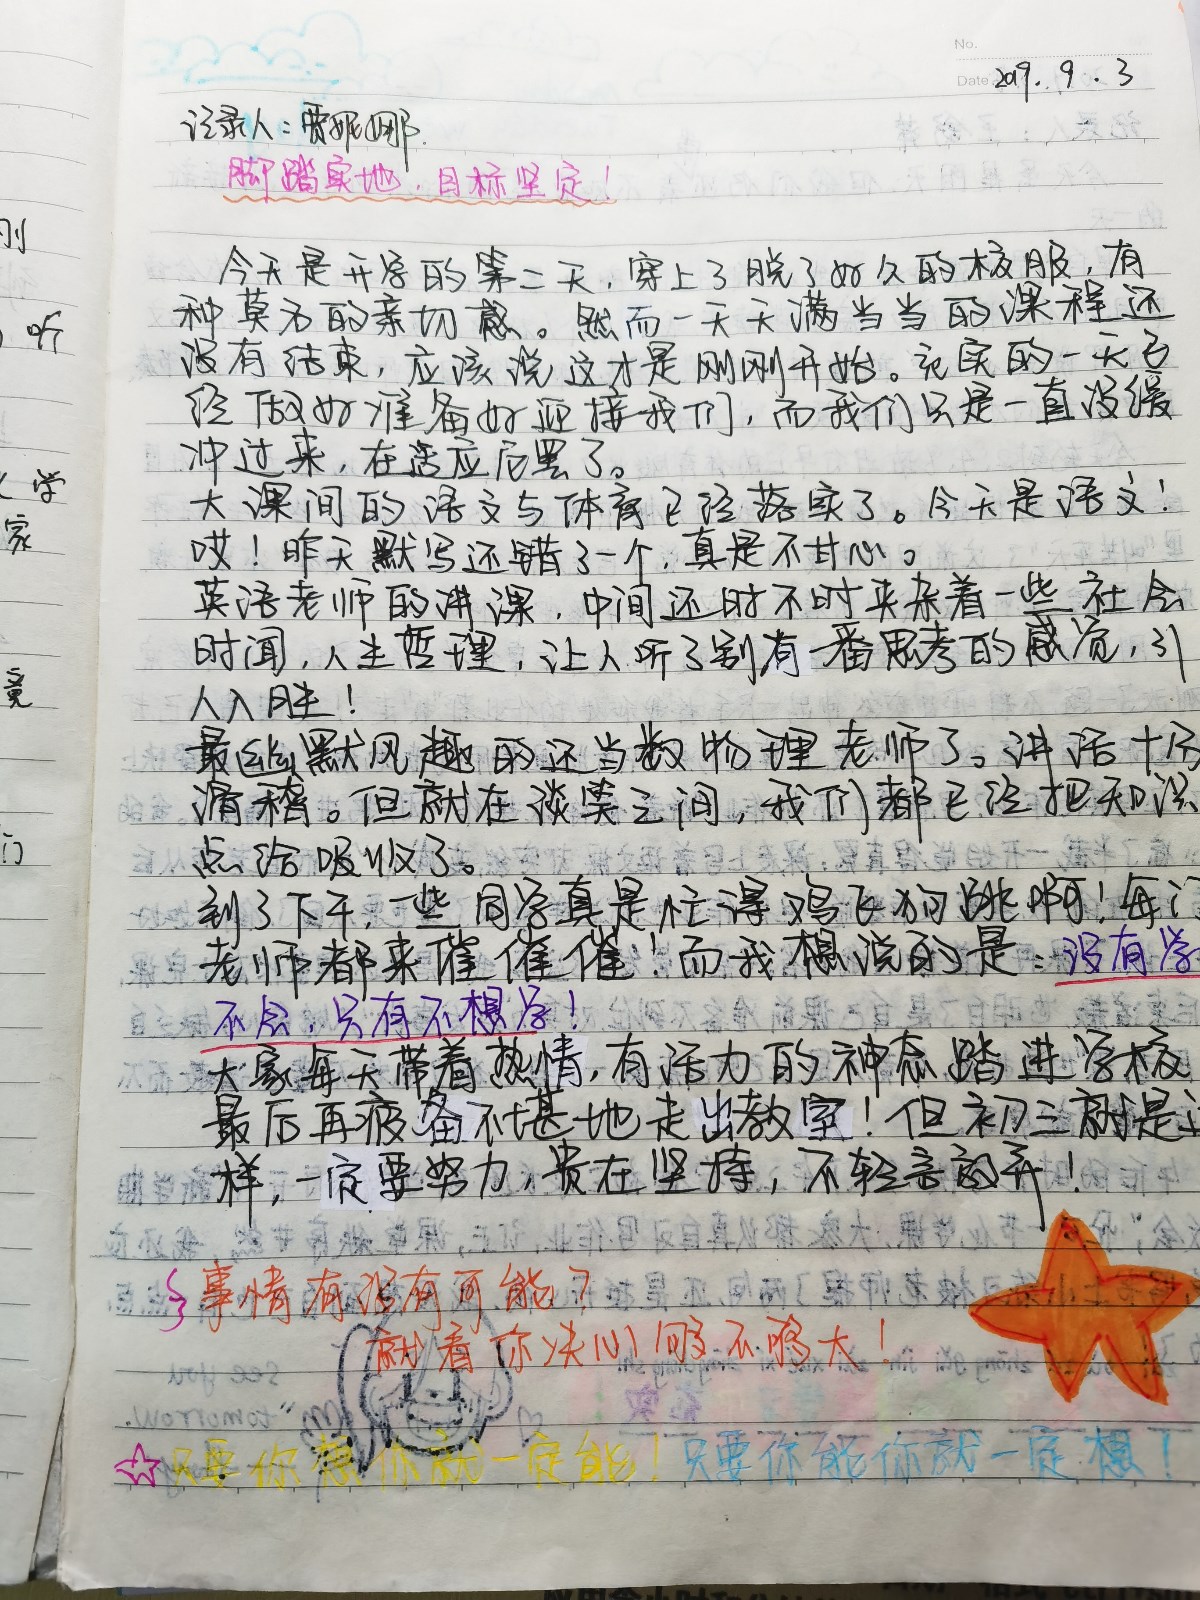 No.
Date 2019.9.3
记录人：贾妮娜.
脚踏实地，目标坚定！
今天是开学的第二天，穿上了脱了好久的校服，有
种莫名的亲切感。然而一天天满当当的课程还
没有结束，应该说这才是刚刚开始。充实的一天已
经做好准备好迎接我们，而我们只是一直没缓
冲过来，在适应后罢了。
大课间的语文与体育已经落实了。今天是语文！
哎！昨天默写还错了一个，真是不甘心。
英语老师的讲课，中间还时不时夹杂着一些社会
时闻，人生哲理，让人听了别有一番思考的感觉，引
人入胜！
最幽默风趣的还当数物理老师了。讲话十分
滑稽。但就在谈笑之间，我们都已经把知识
点给吸收了。
到了下午，一些同学真是忙得鸡飞狗跳啊！每门
老师都来催催催！而我想说的是：没有学
不会，只有不想学！
大家每天带着热情，有活力的神态踏进学校
最后再疲备不堪地走出教室！但初三就是这
样，一定要努力，贵在坚持，不轻言放弃！
事情有没有可能？
就看你决心够不够大！
☆只要你想你就一定能！只要你能你就一定想！
刚
听
学
家
竟
门